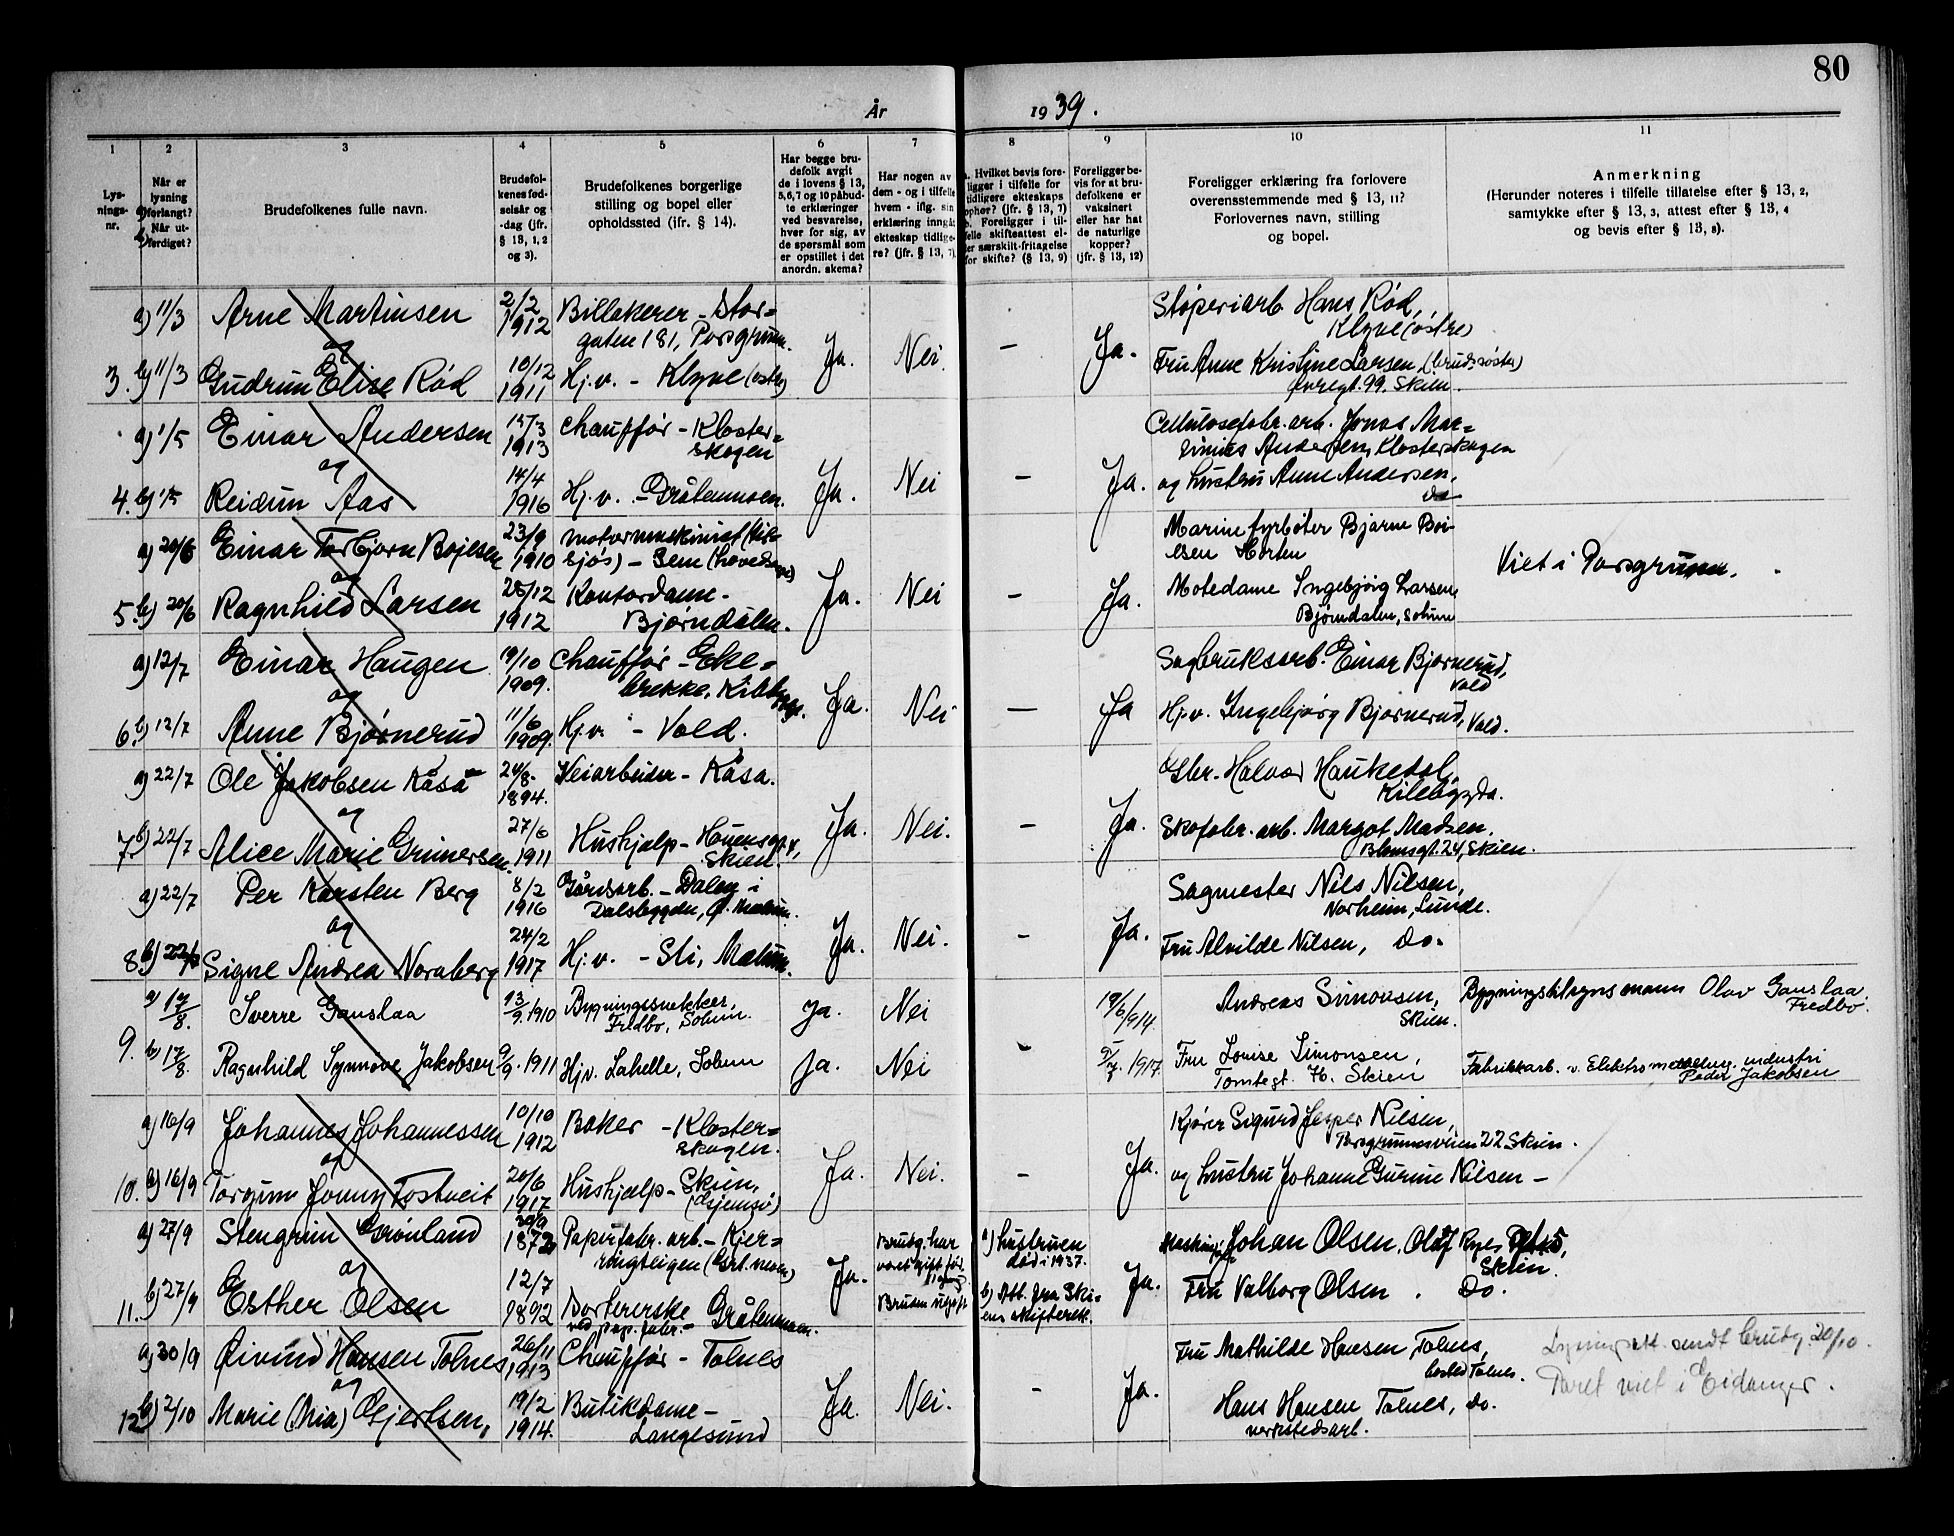 80
År 1939.
1 2 3 4 5 6 7 8 9 10 11
Lys-
nings-
nr.
Når er
lysning
forlangt?
Når ut-
ferdiget?
Brudefolkenes fulle navn.
Brudefol-
kenes fød-
selsår og
-dag (jfr.
§ 13, 1, 2
og 3).
Brudefolkenes borgerlige
stilling og bopel eller
opholdssted (jfr. § 14).
Har begge bru-
defolk avgit
de i lovens § 13,
5, 6, 7 og 10 påbud-
te erklæringer
ved besvarelse,
hver for sig, av
de spørsmål som
er opstillet i det
anordn. skema?
Har nogen av
dem - og i tilfelle
hvem - iflg. sin
erklæring inngått
ekteskap tidlige-
re? (jfr. § 13, 7)
Hvilket bevis fore-
ligger i tilfelle for
tidligere ekteskaps
ophør? (jfr. § 13, 7)
b. Foreligger i til-
felle skifteattest el-
ler særskilt-fritagelse
for skifte? (§ 13, 9)
Foreligger be-
vis for at bru-
defolkene er
vaksinert
eller har hat
de naturlige
kopper?
(jfr. § 13, 12)
Foreligger erklæring fra forlovere
overensstemmende med § 13, 11?
Forlovernes navn, stilling
og bopel.
Anmerkning
(Herunder noteres i tilfelle tillatelse efter § 13, 2,
samtykke efter § 13, 3, attest efter § 13, 4
og bevis efter § 13, 8).
a) 11/3 Arne Martinsen 2/2 1912 Billakerer - Stor=
gaten 181, Porsgrunn.
og
3. b) 11/3 Gudrun Elise Rød 10/12 1911 Hj.v. - Klyve (østre) Ja. Nei. — Ja.
Støperiarb. Hans Rød,
Klyve (østre)
Fru Anne Kristine Larsen (brudssøster)
99, Skien.
a) 1/5 Einar Andersen 15/3 1913 Chauffør - Kloster=
skogen
og
4. b) 1/5 Reidun Aas 14/4 1916 Hj.v. - Gråtenmoen. Ja. Nei — Ja.
Cellulosefabr. arb. Jonas Mar=
Andersen, Klosterskogen
og hustru Anne Andersen,
do
a) 20/6 Einar Torbjørn Bojesen 23/9 1910 Motormaskinist (til-
sjøs) -
og
5. b) 20/6 Ragnhild Larsen 25/12 1912 Kontordame -
Bjørndalen. Ja. Nei — Ja.
Marine fyrbøter Bjarne Boi-
esen Horten
Motedame Ingebjørg Larsen,
Bjørndalen, Solum
Viet i Porsgrunn.
a) 12/7 Einar Haugen 19/10 1909. Chauffør - Eke=
brekke, Kilebygd.
og
6. b) 12/7 Anne Bjørnerud 11/6 1909. Hj.v. - Vold. Ja. Nei — Ja
Sagbruksarb. Einar Bjørnerud,
Vold
Hj.v. Ingebjørg Bjørnerud, Vold.
a) 22/7 Ole Jakobsen Kåsa 24/8. 1894. Veiarbeider - Kåsa.
og
7. b) 22/7 Alice Marie Grinersen. 27/6 1911 Hushjelp -
Skien. Ja. Nei. — Ja.
Gbr. Halvor Haukedal,
Kilebygda.
Skofabr. arb. Margot Madsen.
Blomsgt. 24, Skien.
a) 22/7 Per Karsten Berg 8/2 1916 Gårdsarb. - Dalen i
Dalsbygden, Ø. Melum.
og
8. b) 22/7 Signe Andrea Nornberg 24/2 1917 Hj.v. - Sti, Melum. Ja. Nei. — Ja.
Sagmester Nils Nilsen,
Norheim, Lunde.
Fru Alvilde Nilsen, do.
a) 17/8. Sverre Gauslaa 13/9. 1910 Bygningssnekker,
Fredbo, Solum. Ja. Nei 19/6 1914
9. b) 17/8. Ragnhild Synnøve Jakobsen 9/9. 1911 Hj.v. Lahelle, Solum Ja. Nei — 5/7. 1917.
Andreas Simonsen,
Skien.
Fru Louise Simonsen,
Tomtegt. 76. Skien
Bygningstilsynsmann Olav Gauslaa
Fredbo.
Fabrikkarb. v. Elektrometallurg. industri
Peder Jakobsen
a) 16/9 Johannes Johannessen 10/10 1912 Baker - Kloster=
skogen.
og
10. b) 16/9 Torgunn Jonny Tostveit 20/6 1917 Hushjelp - Skien,
(Gjemsø) Ja. Nei. — Ja.
Kjører Sigurd Jesper Nilsen,
Porsgrunnsveien 22 Skien.
og hustru Johanne Gurine Nilsen —
a) 27/9 Stengrim Grønland 30/9 1872 Papirfabr. arb. - Kjer=
ringteigen (Gråt.moen)
og
11. b) 27/9 Esther Olsen 12/7 1892 Sorterерske
ved pap. fabr. - Gråtenmoen. Ja.
Brudg. har
vært gift før
1 gang.
Bruden ugift
a) hustruen
død i 1937.
b) Att. fra Ski=
ens skifterett. Ja.
Johan Olsen, Olaf Ryes
Skien.
Fru Valborg Olsen. Do.
a) 30/9 Øivind Hansen Tolnes 26/11 1913 Chauffør - Tolnes
og
12. b) 2/10 Marie (Mia) Gjertsen, 19/2 1914. Butikdame -
Langesund Ja. Nei. - Ja.
Fru Mathilde Hansen Tolnes,
bosted Tolnes.
Hans Hansen Tolnes, do.
verkstedsarb.
Lysningsatt. sendt brudg. 20/10.
Paret viet i Eidanger.